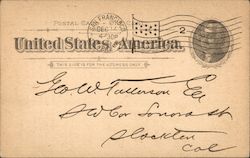 POSTAL CARD - ONE CENT
SAN FRANCISCO
DEC
2
United States America.
THIS SIDE IS FOR THE ADDRESS ONLY.
Geo W
SW Cor Sonora St
Stockton
Cal